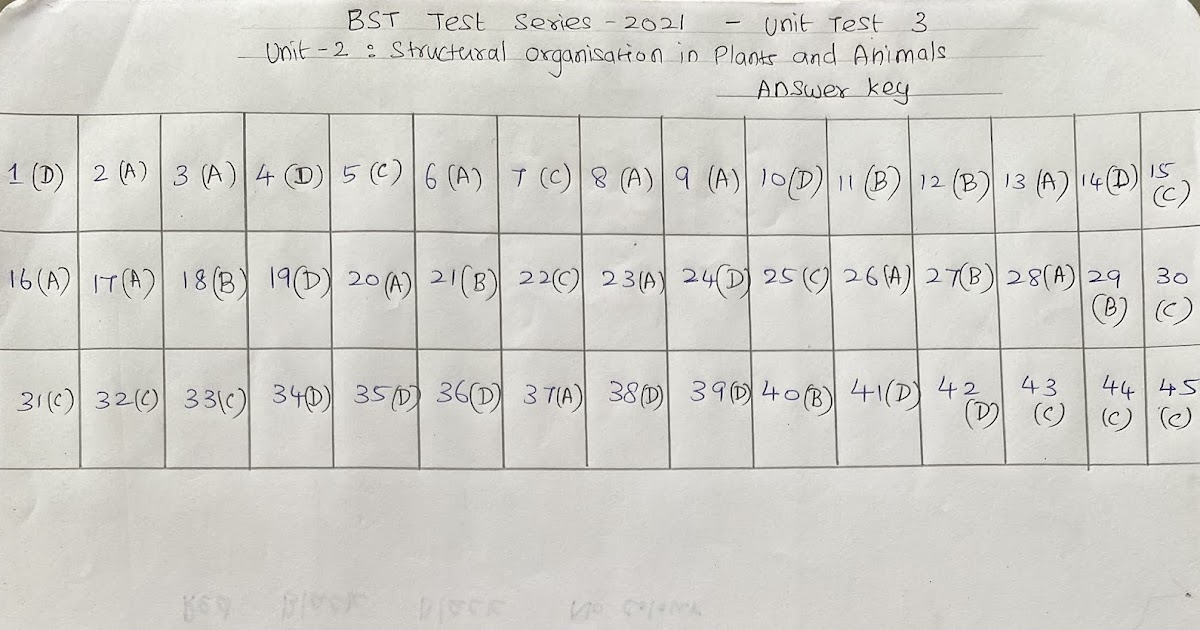 BST Test Series - 2021 - Unit Test 3
Unit - 2 : Structural Organisation in Plants and Animals
Answer Key
1 (D) 2 (A) 3 (A) 4 (D) 5 (C) 6 (A) 7 (C) 8 (A) 9 (A) 10 (D) 11 (B) 12 (B) 13 (A) 14 (D) 15 (C)
16 (A) 17 (A) 18 (B) 19 (D) 20 (A) 21 (B) 22 (C) 23 (A) 24 (D) 25 (C) 26 (A) 27 (B) 28 (A) 29 (B) 30 (C)
31 (C) 32 (C) 33 (C) 34 (D) 35 (D) 36 (D) 37 (A) 38 (D) 39 (D) 40 (B) 41 (D) 42 (D) 43 (C) 44 (C) 45 (C)